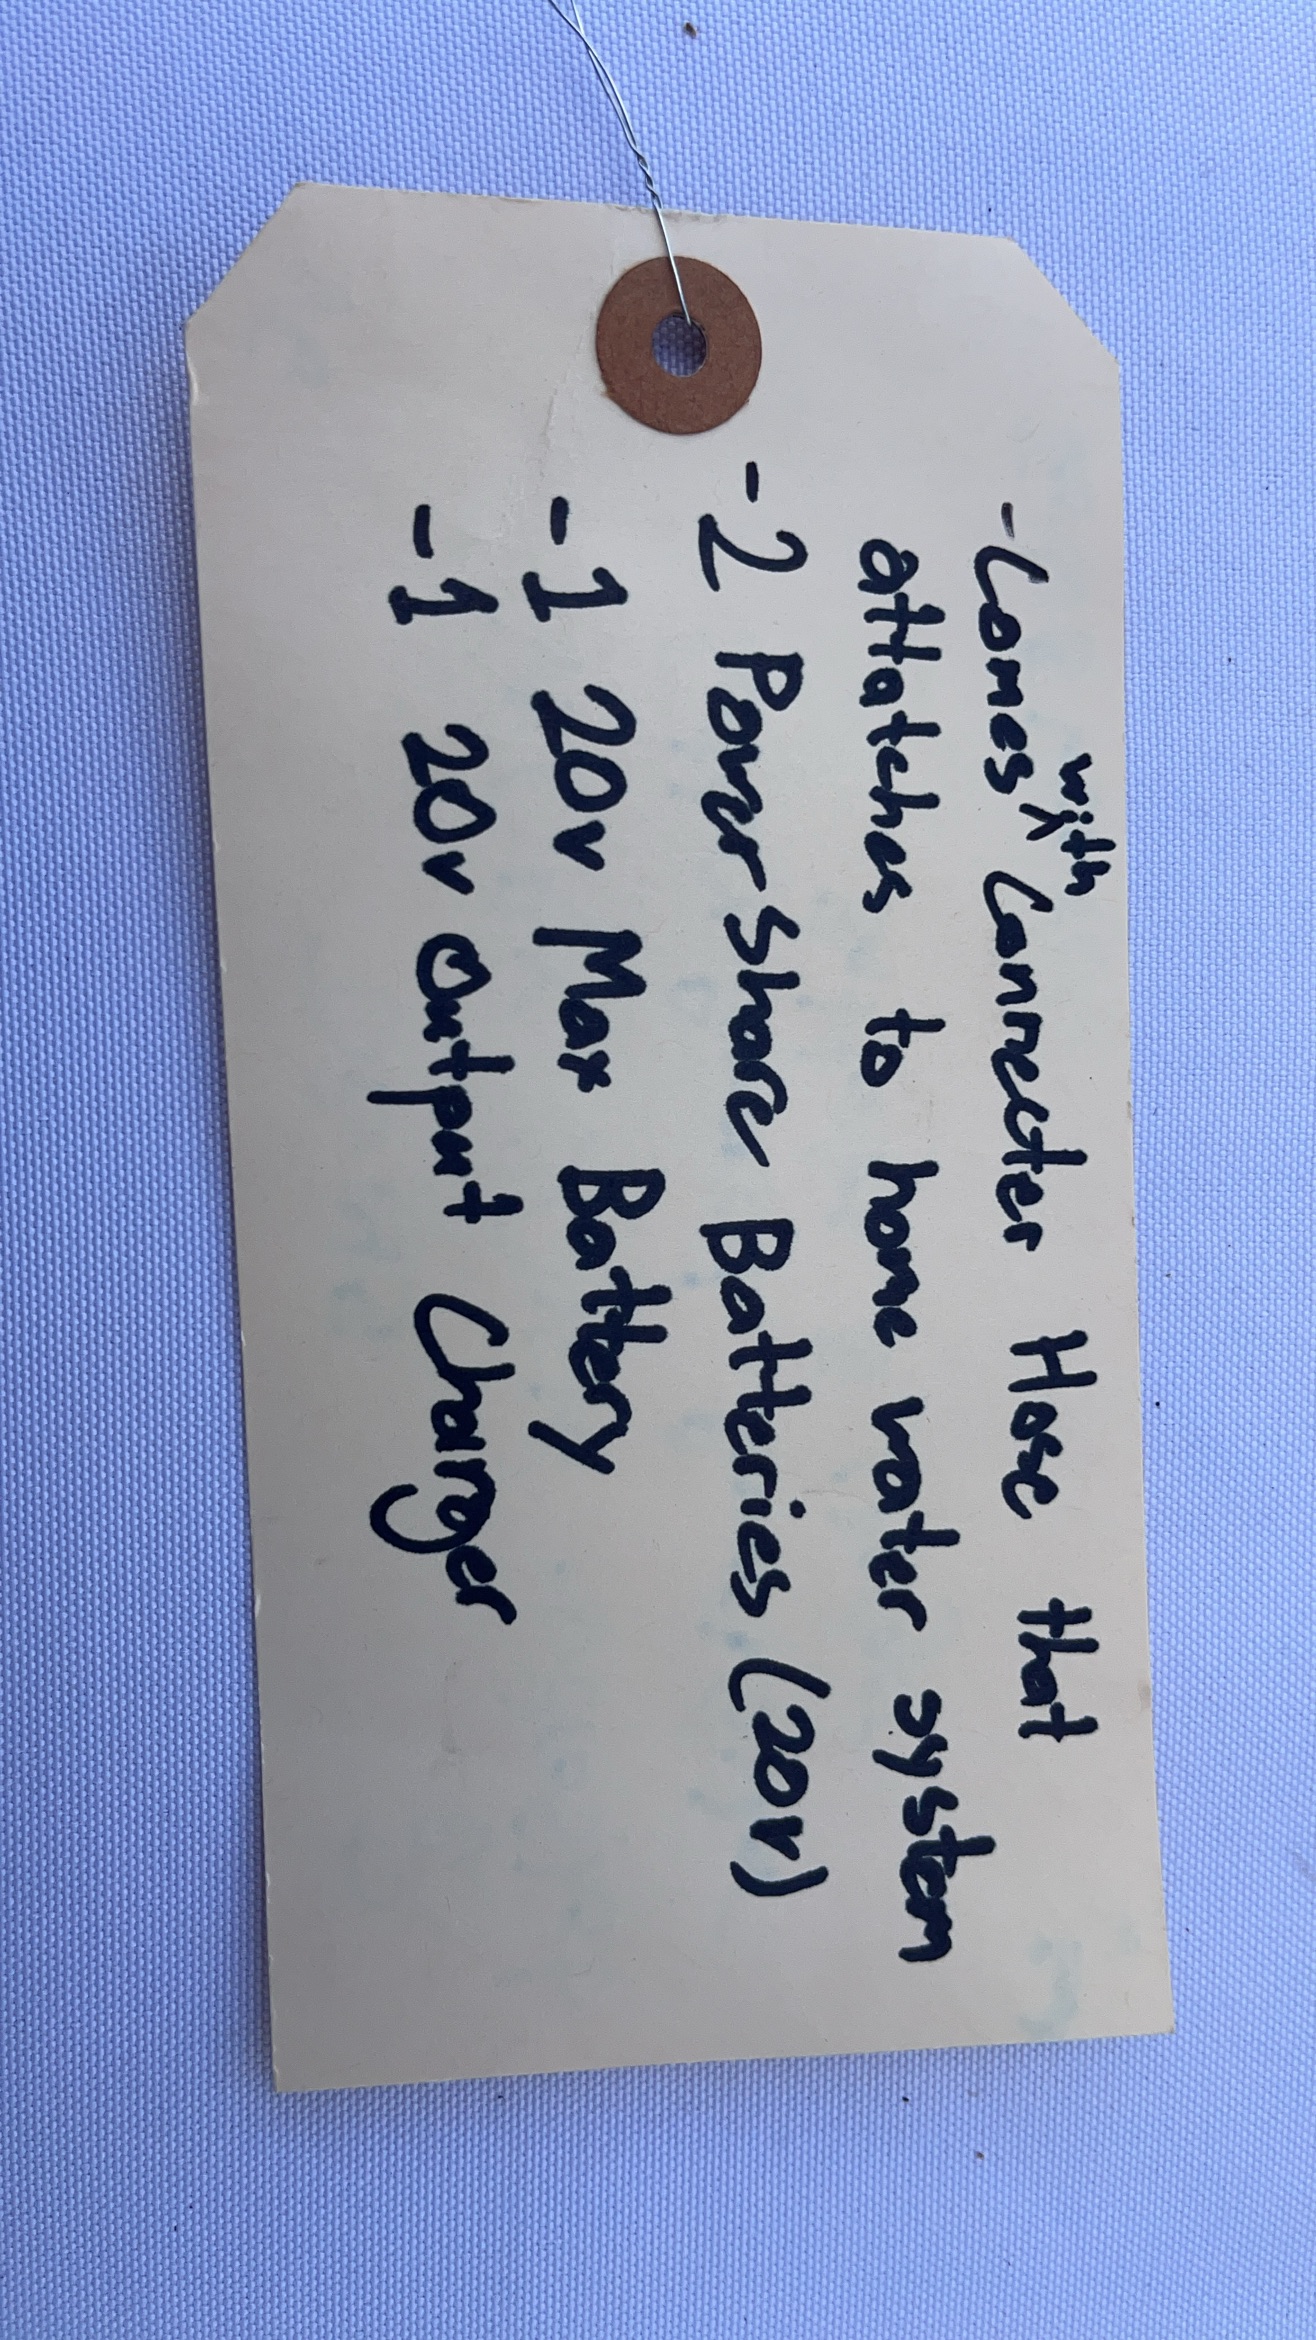 -Comes with Connecter Hose that
attatches to home water system
-2 Power Share Batteries (20v)
-1 20v Max Battery
-1 20v Output Charger